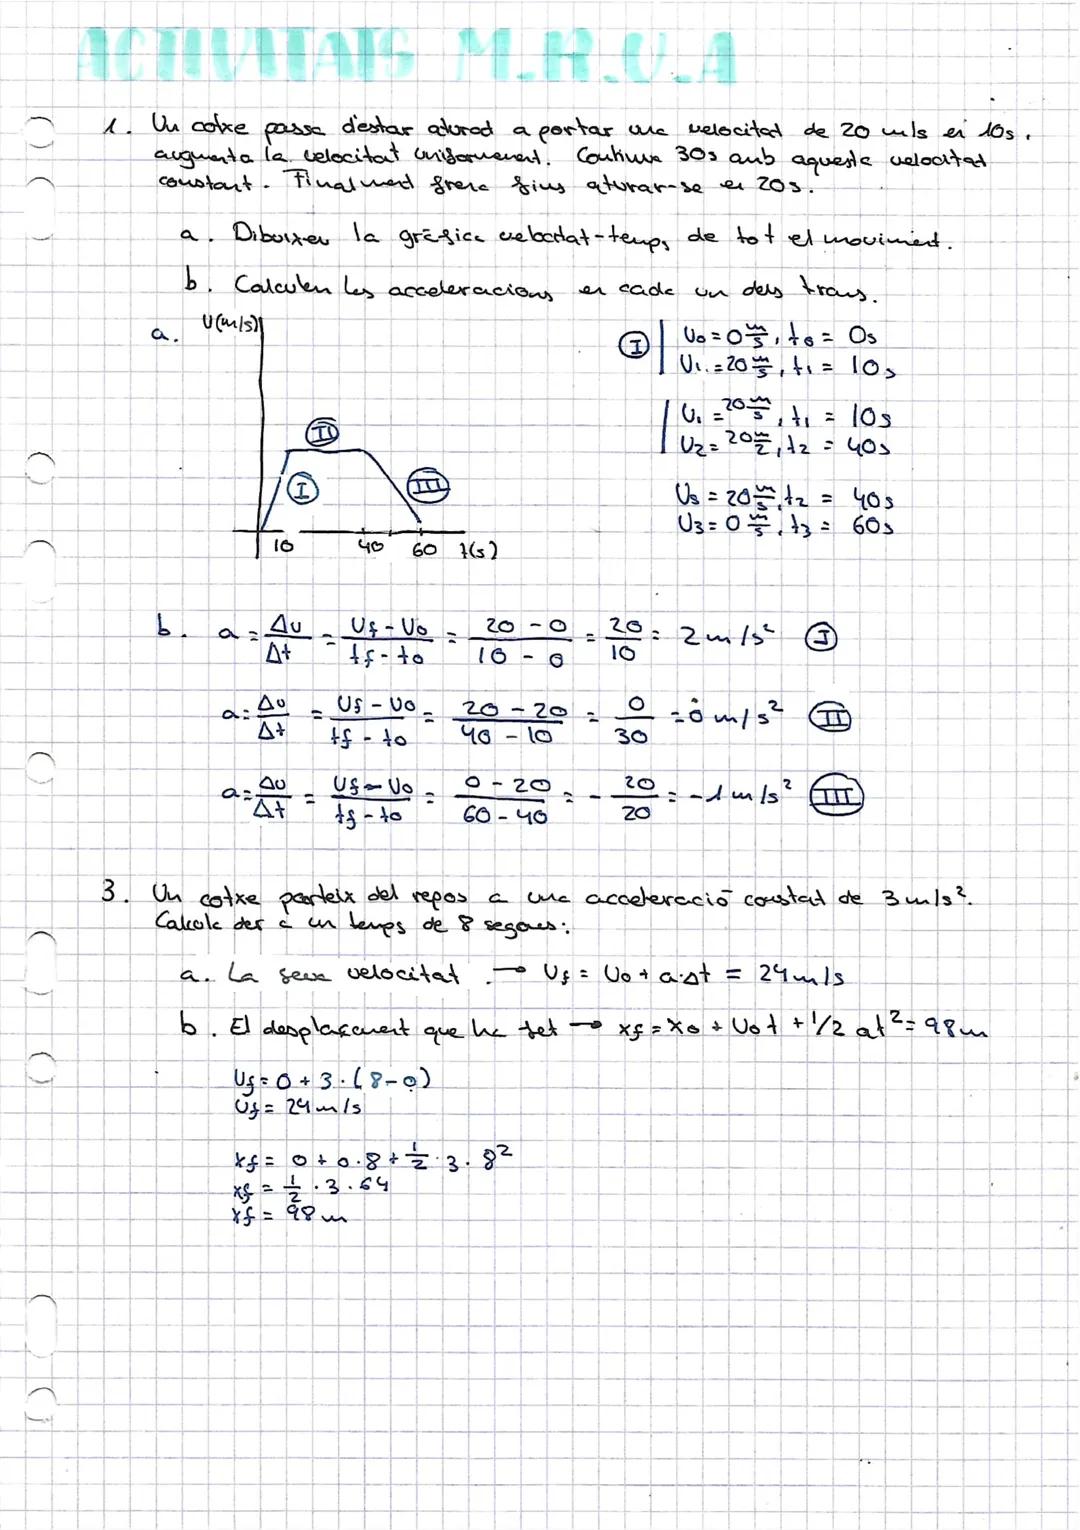 ACTIVITATS M.R.U.A
1. Un cotxe passa d'estar aturad a portar una velocitat de 20 m/s en 10s,
augmenta la velocitat uniformement. Continua 30s amb aquesta velocitat
constant. Finalment frena fins aturar-se en 20s.
a. Dibuixeu la gràfica velocitat-temps de tot el moviment.
b. Calculeu les acceleracions en cada un dels trams.
a.
V(m/s)
I
II
III
10 40 60 t(s)
I V₀ = 0 m/s, t₀ = 0s
V₁ = 20 m/s, t₁ = 10s
V₁ = 20 m/s, t₁ = 10s
V₂ = 20 m/2, t₂ = 40s
Vs = 20 m/s, t₂ = 40s
V₃ = 0 m/s, t₃ = 60s
b. a = Δv/Δt = (Vf - V₀)/(tf - t₀) = (20 - 0)/(10 - 0) = 20/10 = 2 m/s² I
a = Δv/Δt = (Vf - V₀)/(tf - t₀) = (20 - 20)/(40 - 10) = 0/30 = 0 m/s² II
a = Δv/Δt = (Vf - V₀)/(tf - t₀) = (0 - 20)/(60 - 40) = - 20/20 = -1 m/s² III
3. Un cotxe parteix del repos a una acceleració constat de 3 m/s².
Calcula der a un temps de 8 segons:
a. La seva velocitat. → Vf = V₀ + a·Δt = 24 m/s
b. El desplaçament que ha fet → xf = x₀ + V₀t + 1/2 at² = 98m
Vf = 0 + 3 · (8-0)
Vf = 24 m/s
xf = 0 + 0·8 + 1/2 · 3 · 8²
xf = 1/2 · 3 · 64
xf = 98 m